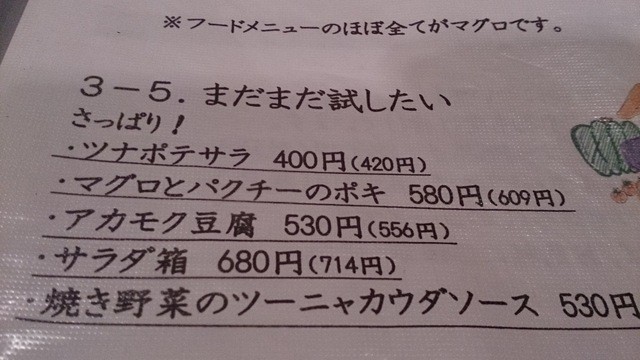 ※フードメニューのほぼ全てがマグロです。
３－５．まだまだ試したい
さっぱり！
・ツナポテサラ 400円(420円)
・マグロとパクチーのポキ 580円(609円)
・アカモク豆腐 530円(556円)
・サラダ箱 680円(714円)
・焼き野菜のツーニャカウダソース 530円